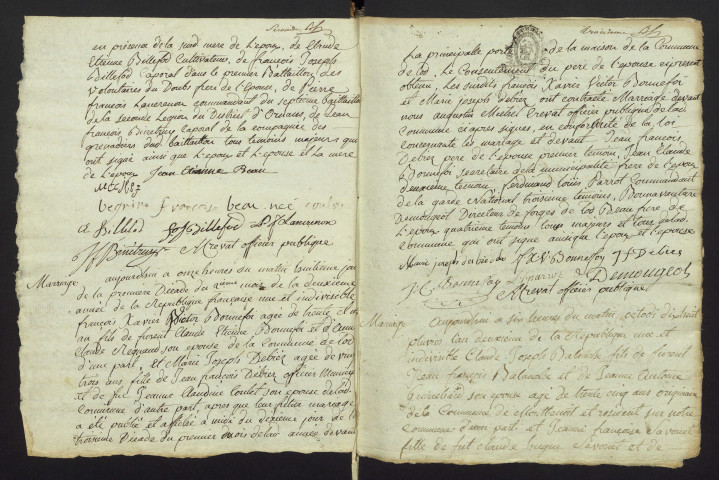 Seconde
en présence de la sud mere de L'epoux, de Claude
Etienne Billefod Cultivateurs, de françois Joseph
Billefod Caporal dans le premier Battaillon des
Volontaires du Doubs frere de l'épouse, de Pierre
françois Lanrenon commandant du septieme Battaillon
de la seconde Legion du District d'Ornans, de Jean
françois Binétruy Caporal de la compagnie des
grenadiers dud Battaillon tous temoins majeurs qui
ont signé ainsi que L'epoux et L'epouse et la mere
de L'epoux Jean Etienne Beau
françois beau née
Billefod
A trevat officier publique
Mariage
aujourdhui a onze heures du matin huitieme jour
de la premiere Decade du mois de la deuxieme
année de la Republique française une et indivisible
françois Xavier Victor Bonnefoi agée de trente et
un fils de furent Claude Etienne Bonnefoi et d'Anne
Claude Regnaud son epouse de la Commune de Lod
d'une part, et Marie Joseph Debrez agée de vingt
trois ans fille de Jean françois Debrez officier Municipal
et de fut Jeanne Claudine Coulet son epouse de lad
Commune d'autre part, après que leur futur mariage
a été publié et affiché a midi du dixieme jour de la
troisieme Decade du premier mois de lad année devant
troisieme
La principalle porte de la maison de la Commune
de Lod, Le Consentement du pere de l'epouse expressement
obtenu, Les susdits françois Xavier Victor Bonnefoi
et Marie Joseph debrez, ont contractée Marriage devant
nous augustin Michel Trevat officier publique de lad
Commune ci apres signés, en conformité de la Loi
concernante les mariage et devant Jean françois
Debrez pere de l'epouse premier temoin, Jean Claude
Bonnefoi secretaire de la municipalité frere de l'epoux
deuxieme temoin, ferdinand Loüis Parrot Commandant
de la garde National troisieme temoins, Bonnaventure
Demougeot Directeur des forges de Lod Beau frere de
l'epoux quatrième temoin tous majeurs et tous de lad
Commune qui ont signé ainsi que l'epoux et l'epouse
Marie joseph debrez f X V Bonnefoy J f Debrez
J. C. Bonnefoy Demougeot
A trevat officier publique
Mariage
Aujourdhui a six heures du matin octodi dix huit
pluviose l'an deuxieme de la Republique une et
indivisible Claude Joseph Balande fils de furent
Jean françois Balande et de Jeanne Antoine
son épouse agé de trente cinq ans originaire
de la Commune de et resident sur notre
commune d'une part et Jeanne françoise
fille de fut claude hugue et de